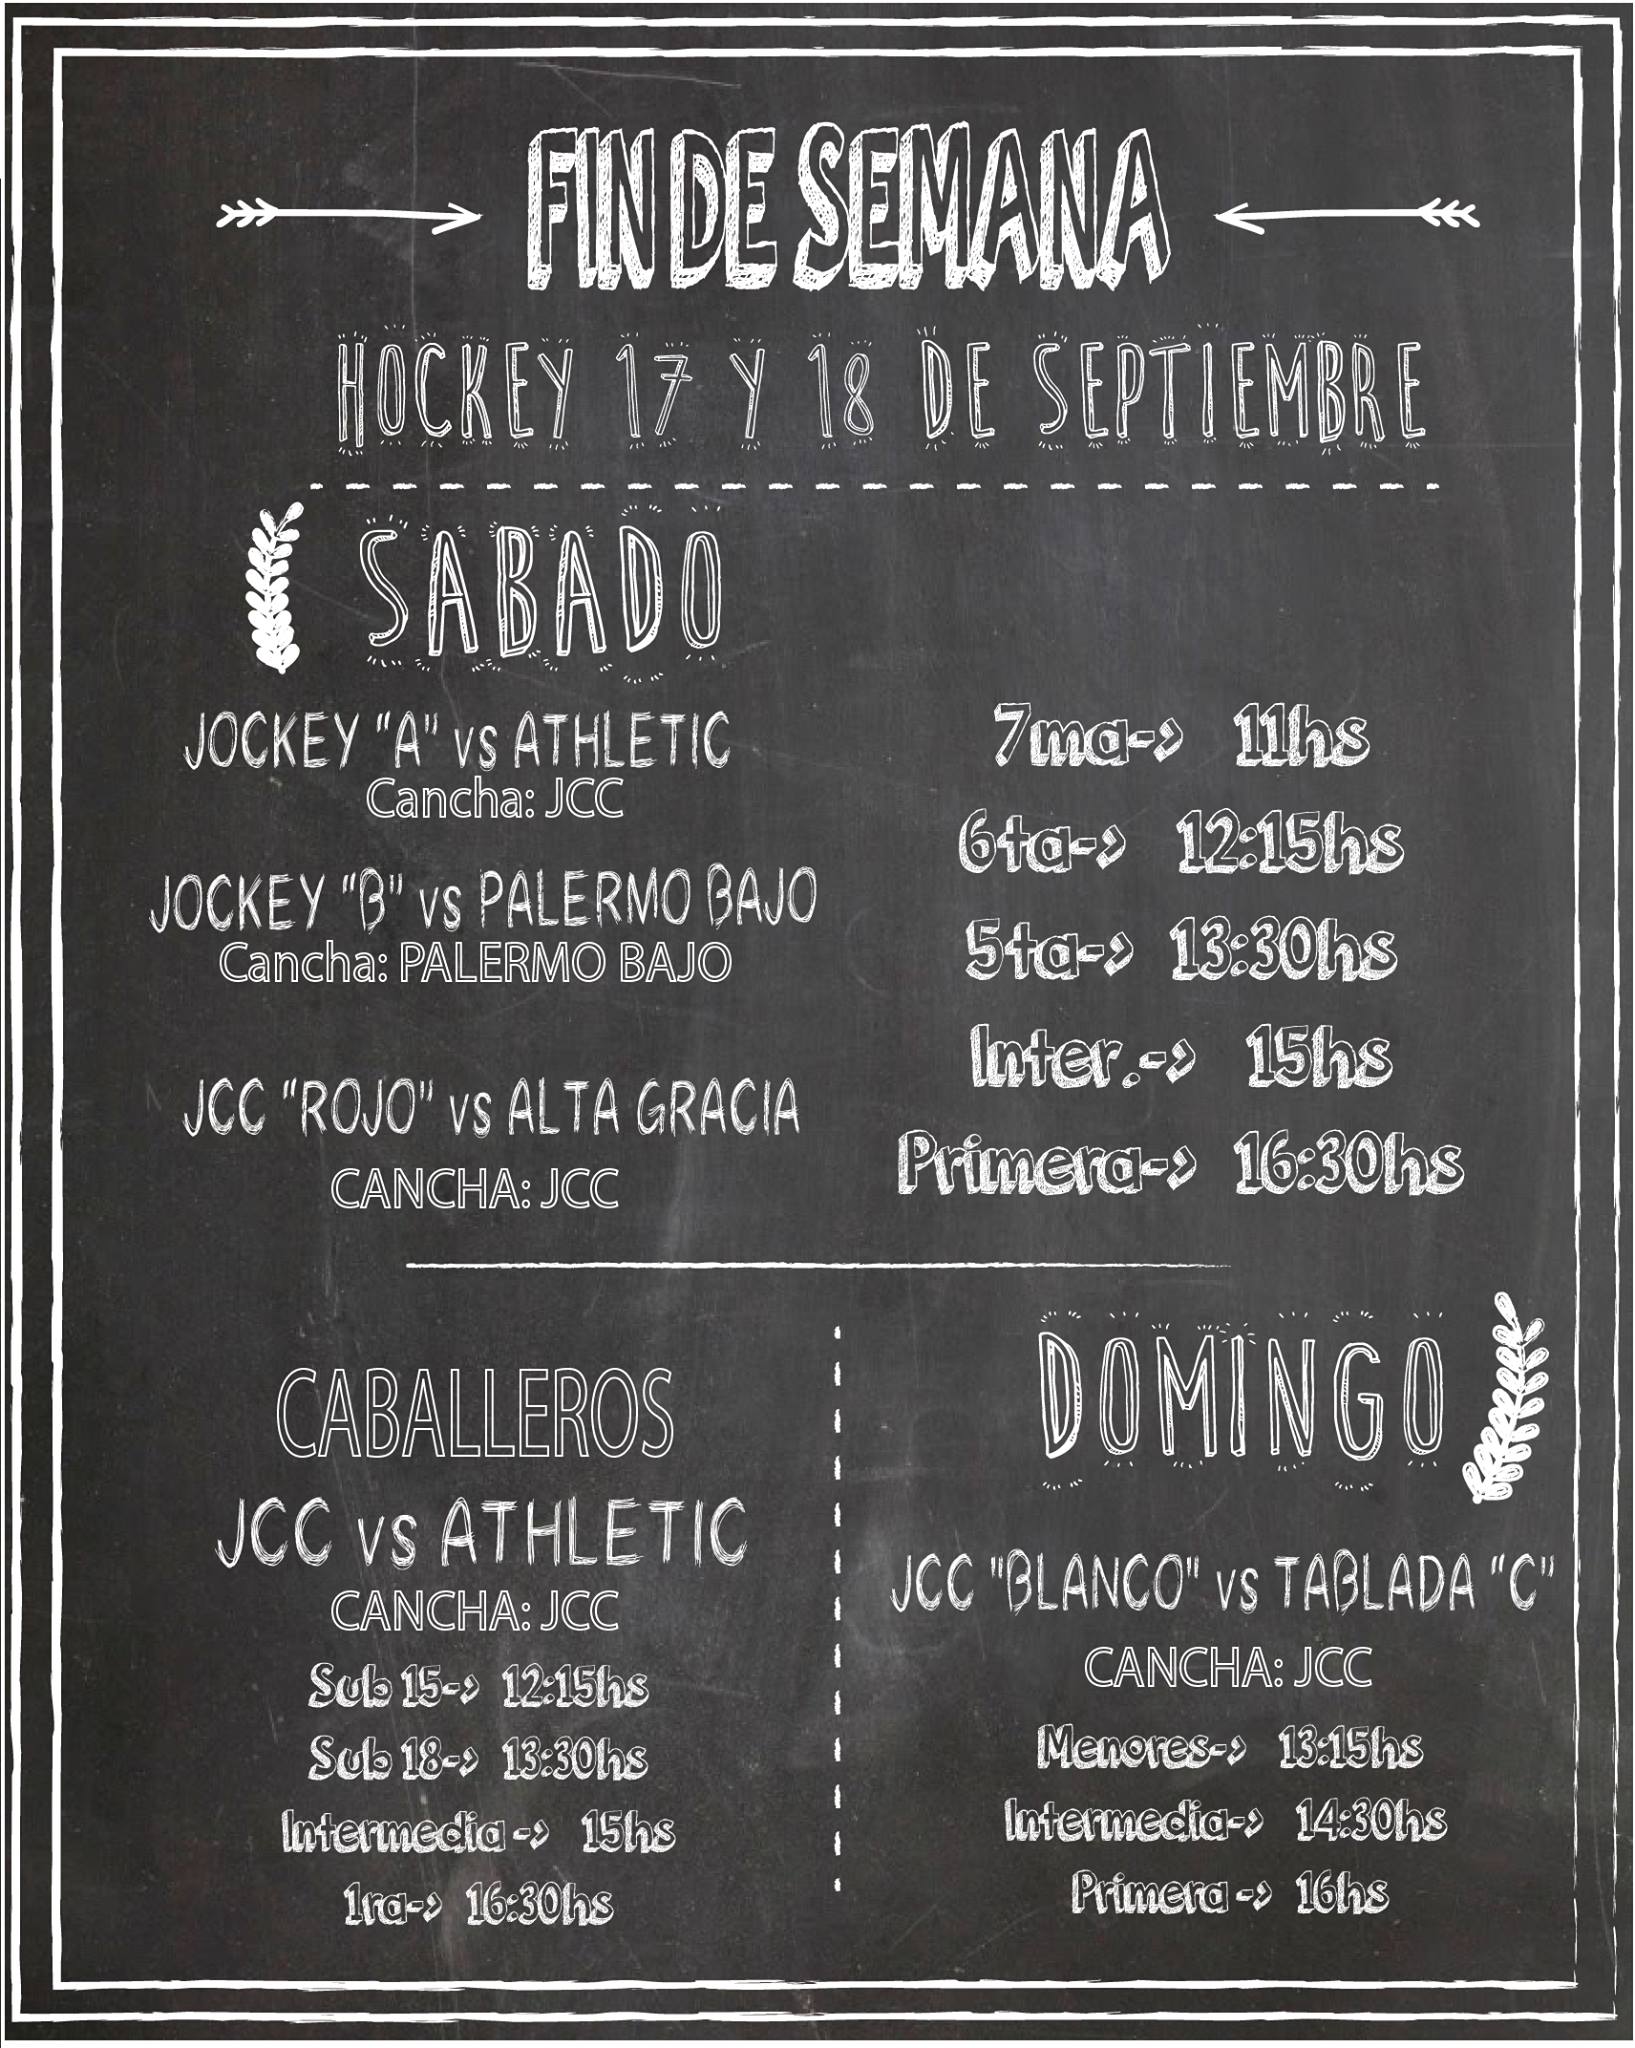 FIN DE SEMANA
HOCKEY 17 Y 18 DE SEPTIEMBRE
SABADO
JOCKEY "A" vs ATHLETIC
Cancha: JCC
JOCKEY "B" vs PALERMO BAJO
Cancha: PALERMO BAJO
JCC "ROJO" vs ALTA GRACIA
CANCHA: JCC
7ma-> 11hs
6ta-> 12:15hs
5ta-> 13:30hs
Inter.-> 15hs
Primera-> 16:30hs
CABALLEROS
JCC vs ATHLETIC
CANCHA: JCC
Sub 15-> 12:15hs
Sub 18-> 13:30hs
Intermedia -> 15hs
1ra-> 16:30hs
DOMINGO
JCC "BLANCO" vs TABLADA "C"
CANCHA: JCC
Menores-> 13:15hs
Intermedia-> 14:30hs
Primera -> 16hs